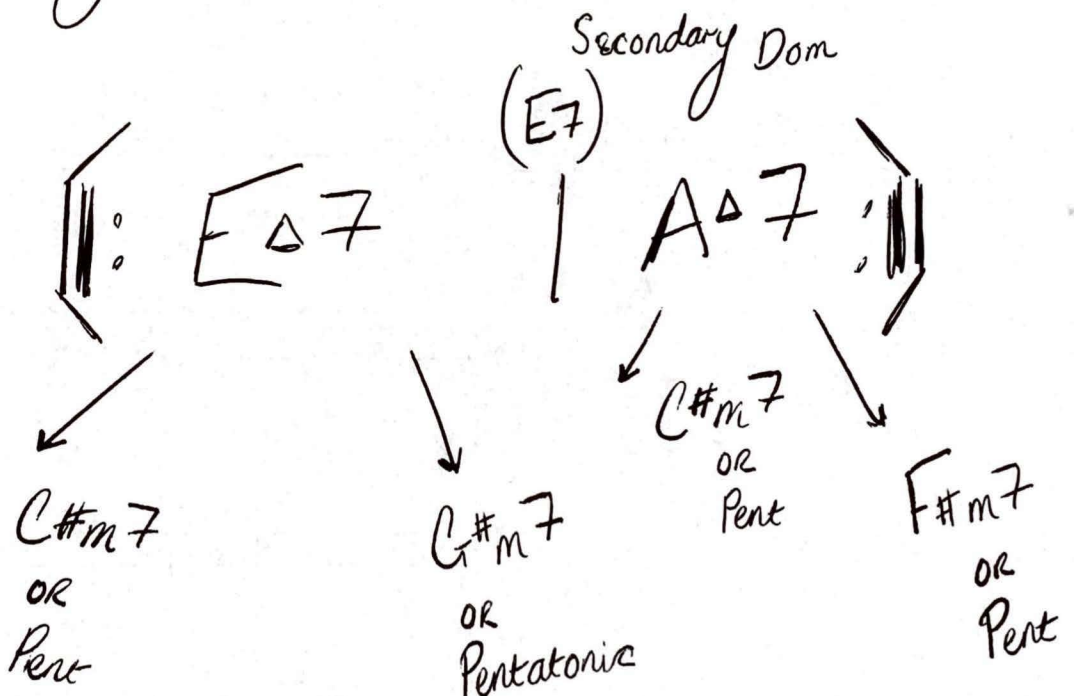 Secondary Dom
(E7)
E△7 | A△7
C#m7
OR
Pent
G#m7
OR
Pentatonic
C#m7
OR
Pent
F#m7
OR
Pent